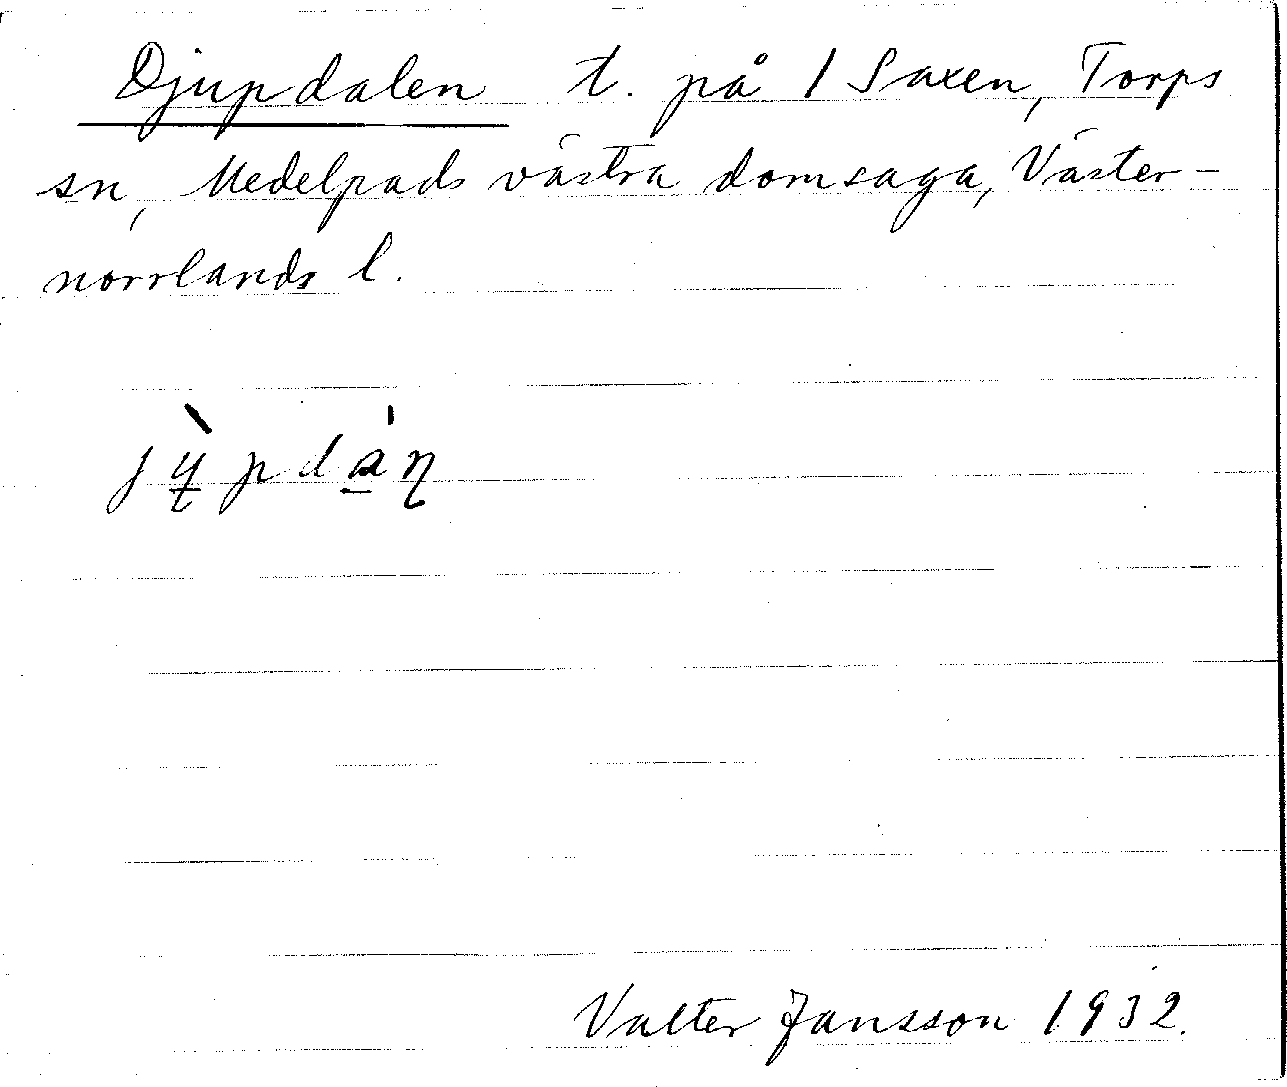 Djupdalen t. på 1 Saxen, Torps
sn, Medelpads västra domsaga, Väster-
norrlands l.
jỳ̲pda̲̍ƞ
Valter Jansson 1932.